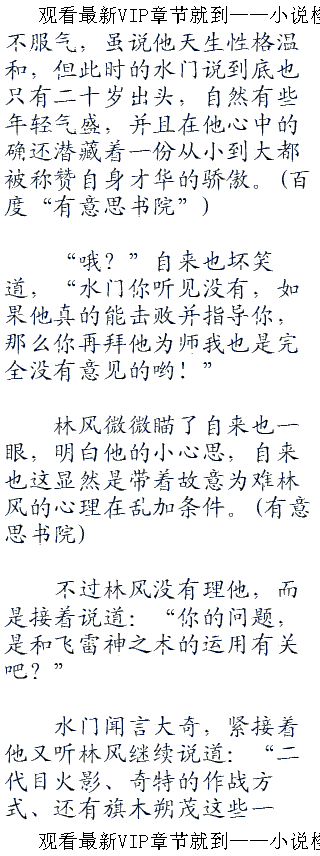 观看最新VIP章节就到——小说
不服气，虽说他天生性格温
和，但此时的水门说到底也
只有二十岁出头，自然有些
年轻气盛，并且在他心中的
确还潜藏着一份从小到大都
被称赞自身才华的骄傲。(百
度“有意思书院”)
“哦？”自来也坏笑
道，“水门你听见没有，如
果他真的能击败并指导你，
那么你再拜他为师我也是完
全没有意见的哟！”
林风微微瞄了自来也一
眼，明白他的小心思，自来
也这显然是带着故意为难林
风的心理在乱加条件。(有意
思书院)
不过林风没有理他，而
是接着说道：“你的问题，
是和飞雷神之术的运用有关
吧？”
水门闻言大奇，紧接着
他又听林风继续说道：“二
代目火影、奇特的作战方
式、还有旗木朔茂这些一
观看最新VIP章节就到——小说